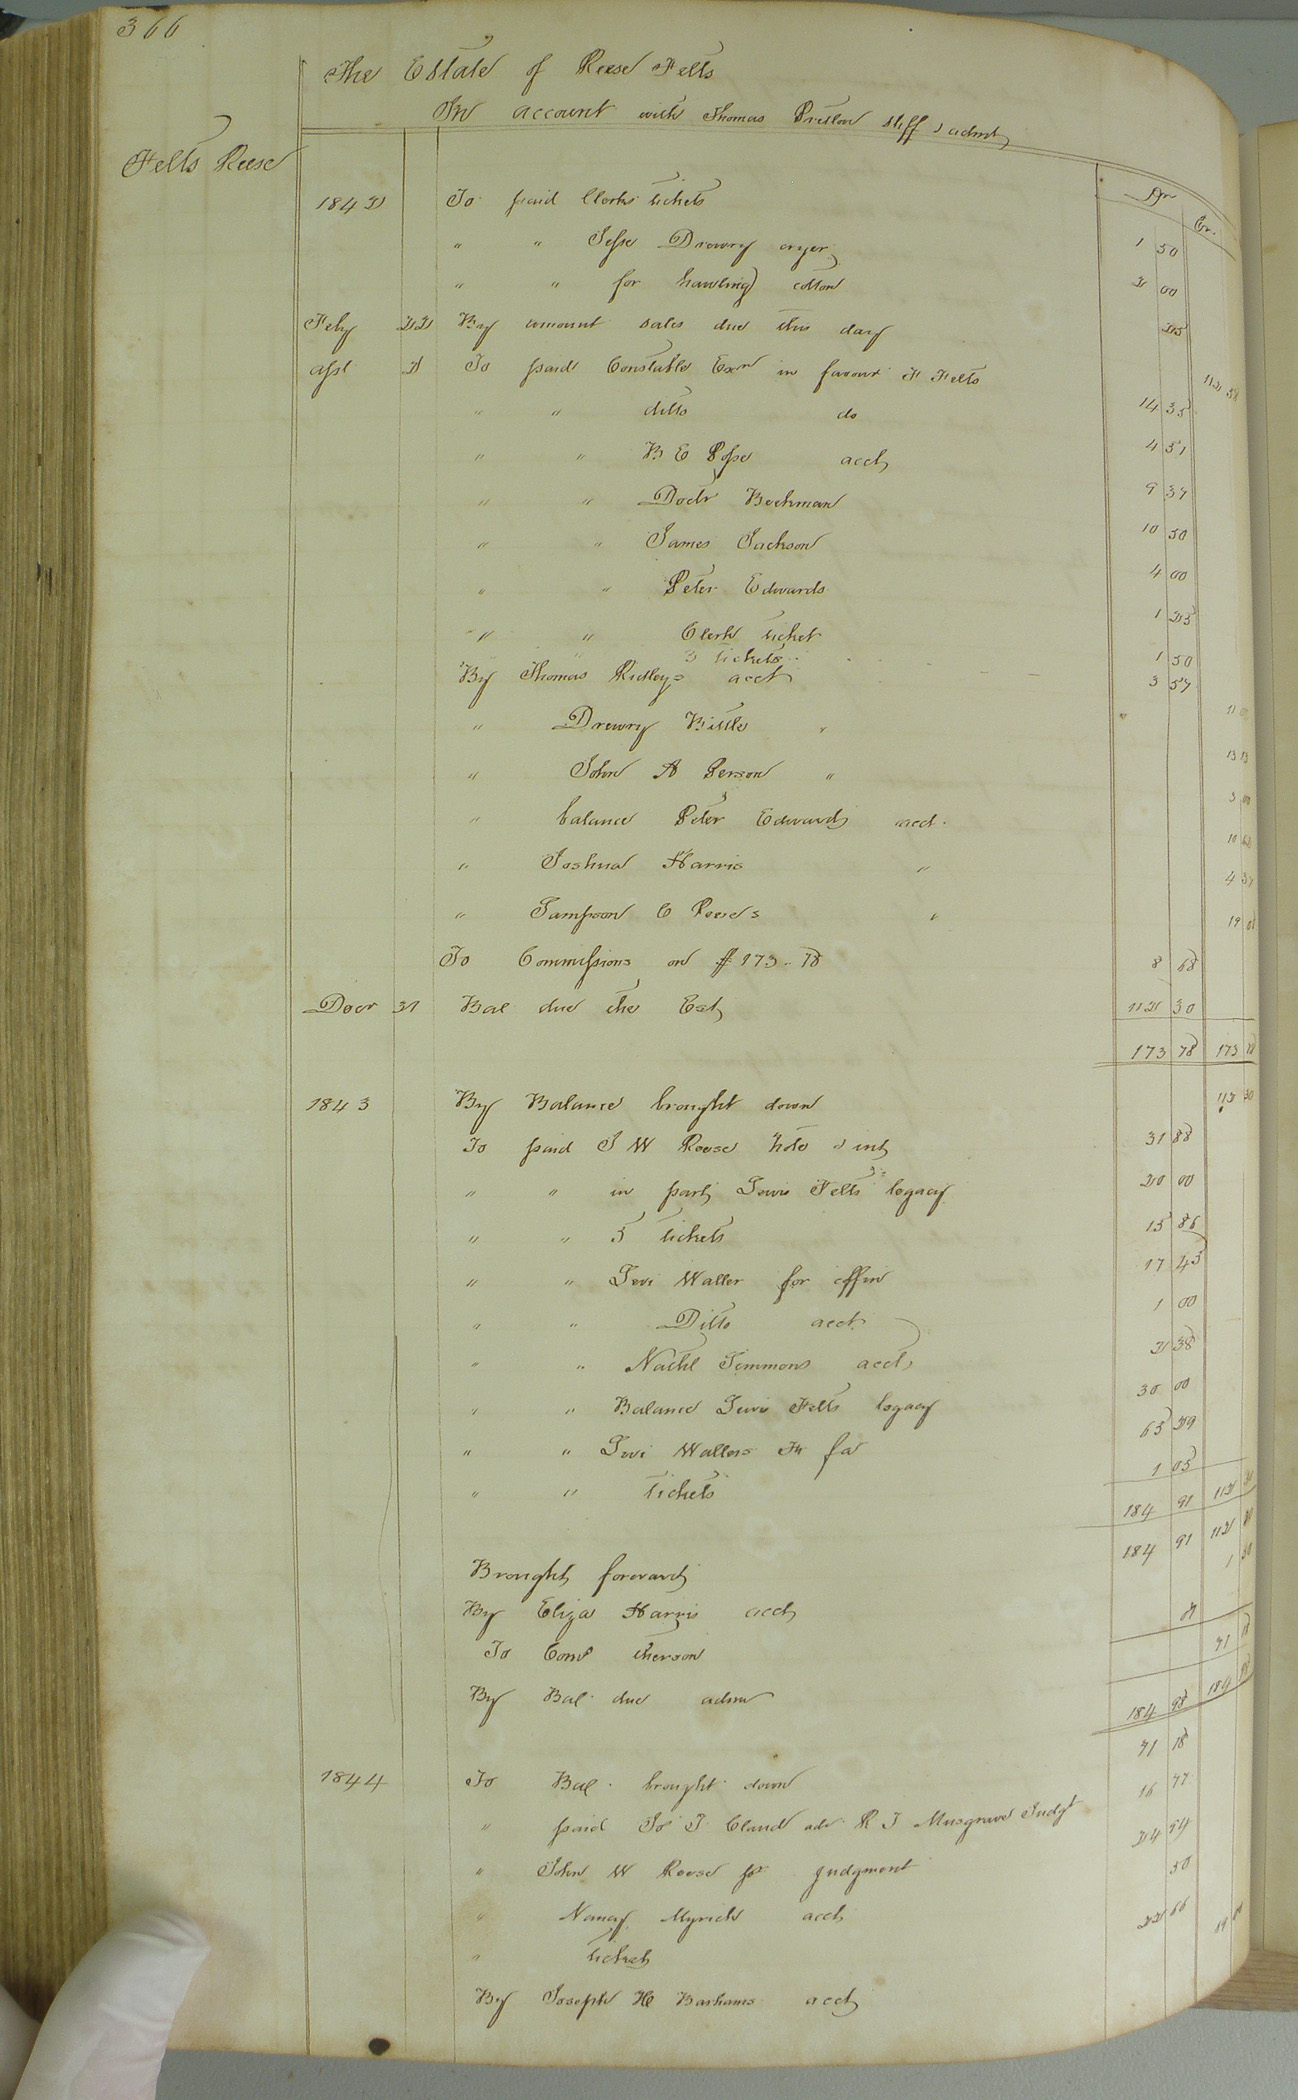 366
The Estate of Reese Felts
In account with Thomas Pretlow shff & admr
Felts Reese
Dr Cr.
1842 To paid Clerks tickets 1 50
" " Jesse Drewry cryer 2 00
" " for hauling cotton 25
Feby 22 By amount sales due this day 112 58
apl 2 To paid Constable Exn in favour F Felts 14 35
" " ditto do 4 51
" " B E acct 9 37
" " Doctr Bockman 10 50
" " James Jackson 4 00
" " Peter Edwards 1 25
" " Clerk ticket 1 50
" " 3 tickets 3 57
By Thomas Ridleys acct 11
" Drewry Bittle " 13 13
" John A Person " 3 00
" balance Peter Edwards acct. 10
" Joshua Harris " 4 37
" Sampson C Reeses " 19
To Commissions on $173.78 8 68
Decr 31 Bal due the Est 112 30
173 78 173 78
1843 By Balance brought down 112 30
To paid J W Reese note & int 31 88
" " in part Lewis Felts legacy 20 00
" " 5 tickets 15 86
" " Levi Waller for coffin 17 43
" " Ditto acct 1 00
" " Nathl Simmons acct 2 38
" " Balance Lewis Felts legacy 30 00
" " Levi Wallers Fi fa 65 29
" " tickets 1 05
184 91 112 30
Brought forward 184 91 112 30
By Eliza Harris acct 1 50
To Coms thereon 7
By Bal. due admr 71 18
184 98 184 98
1844 To Bal. brought down 71 18
" paid Jo J. Claud adr R J Musgrave Judgt 16 77
" John W Reese for judgment 24 94
" Nancy Myrick acct 50
" ticket 22 66
By Joseph H Barhams acct 19